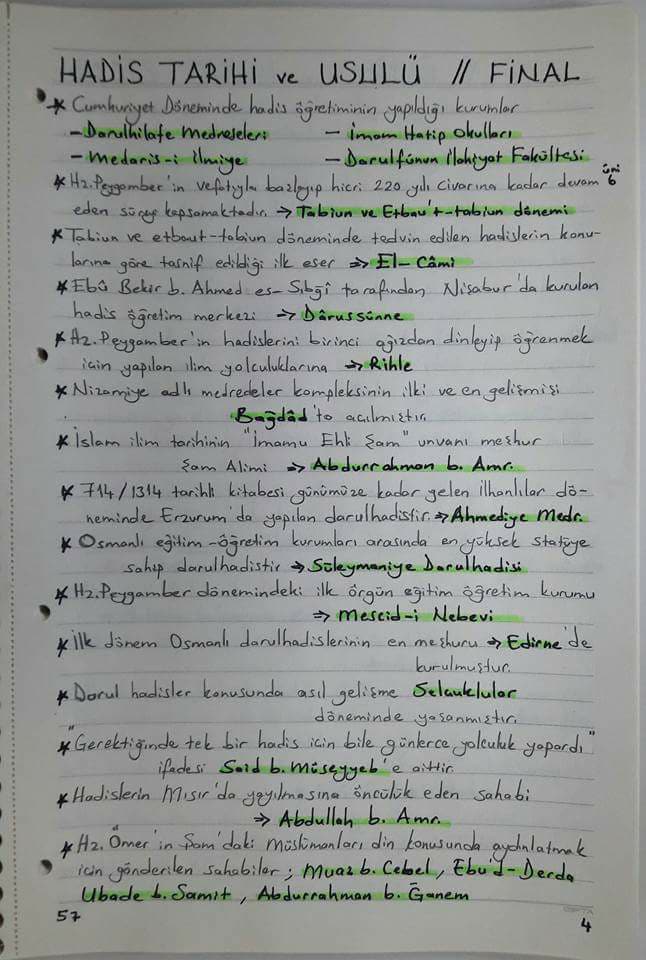 HADİS TARİHİ ve USULÜ // FİNAL
* Cumhuriyet Döneminde hadis öğretiminin yapıldığı kurumlar
- Darulhilafe Medreseleri - İmam Hatip Okulları
- Medaris-i İlmiye - Darulfünun İlahiyat Fakültesi
* Hz. Peygamber'in vefatıyla başlayıp hicri 220 yılı civarına kadar devam
eden süreyi kapsamaktadır. → Tabiun ve Etbau't-tabiun dönemi
üni 6
* Tabiun ve etbaut-tabiun döneminde tedvin edilen hadislerin konu-
larına göre tasnif edildiği ilk eser ⇒ El-Câmi
* Ebû Bekir b. Ahmed es-Sıbğî tarafından Nişabur'da kurulan
hadis öğretim merkezi → Dârussünne
* Hz. Peygamber'in hadislerini birinci ağızdan dinleyip öğrenmek
için yapılan ilim yolculuklarına ⇒ Rihle
* Nizamiye adlı medredeler kompleksinin ilki ve en gelişmişi
Bağdâd'ta açılmıştır.
* İslam ilim tarihinin "İmamu Ehli Şam" unvanı meşhur
Şam Alimi ⇒ Abdurrahman b. Amr.
* 714/1314 tarihli kitabesi günümüze kadar gelen İlhanlılar dö-
neminde Erzurum'da yapılan darulhadistir. ⇒ Ahmediye Medr.
* Osmanlı eğitim-öğretim kurumları arasında en yüksek statüye
sahip darulhadistir ⇒ Süleymaniye Darulhadisi
* Hz. Peygamber dönemindeki ilk örgün eğitim öğretim kurumu
⇒ Mescid-i Nebevi
* İlk dönem Osmanlı darulhadislerinin en meşhuru ⇒ Edirne'de
kurulmuştur.
* Darul hadisler konusunda asıl gelişme Selçuklular
döneminde yaşanmıştır.
* "Gerektiğinde tek bir hadis için bile günlerce yolculuk yapardı"
ifadesi Said b. Müseyyeb'e aittir.
* Hadislerin Mısır'da yayılmasına öncülük eden sahabi
⇒ Abdullah b. Amr.
* Hz. Ömer'in Şam'daki Müslümanları din konusunda aydınlatmak
için gönderilen sahabiler; Muaz b. Cebel, Ebu'd-Derda
Ubade b. Samit, Abdurrahman b. Ğanem
57
4